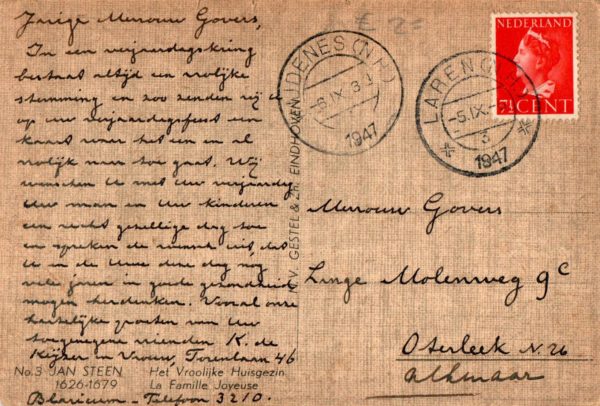 Jarige Mevrouw Govers,
In een verjaardagskring
bestaat altijd een vrolijke
stemming en zoo zenden wij U
op uw verjaardagsfeest een
kaart waar het een en al
vrolijk naar toe gaat. Wij
wenschen U met Uw verjaardag
Uw man en Uw kinderen
een recht gezellige dag toe
en spreken de wensch uit, dat
U in de Uwe deze dag nog
vele jaren in goede gezondheid
mogen herdenken. Vooral onze
hartelijke groeten van Uw
toegenegene vrienden K. de
Keijzer en Vrouw, Torenlaan 46
Blaricum - Telefoon 3210.
No. 3 JAN STEEN
1626-1679
Het Vroolijke Huisgezin
La Famille Joyeuse
N.V. GESTEL & ZN. EINDHOVEN
IJDENES (N.H.)
-6.IX.
1947
LAREN
-5.IX.
3
1947
NEDERLAND
7½ CENT
Mevrouw Govers
Lange Molenweg 9c
Oterleek N.26
Alkmaar